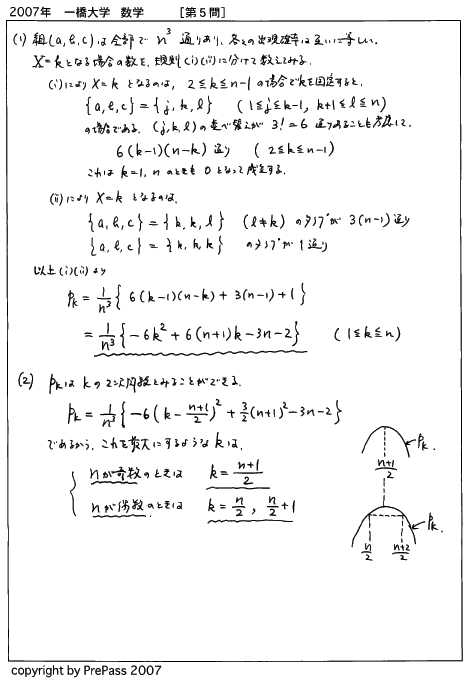 2007年 一橋大学 数学 [第5問]
(1) 組(a, b, c)は全部で n³ 通りあり、各々の出現確率は互いに等しい。
X=kとなる場合の数を、規則(i)(ii)に分けて数えてみる。
(i)により X=k となるのは、2≦k≦n-1 の場合でkを固定すると、
{a, b, c} = {j, k, l} (1≦j≦k-1, k+1≦l≦n)
の場合である。(j, k, l) の並べ替えが 3! = 6 通りあることも考慮して、
6(k-1)(n-k) 通り (2≦k≦n-1)
これは k=1, n のときも 0 となって成立する。
(ii)により X=k となるのは、
{a, b, c} = {k, k, l} (l≠k) のタイプが 3(n-1) 通り
{a, b, c} = {k, k, k} のタイプが 1 通り
以上(i)(ii)より
Pk = 1/n³ { 6(k-1)(n-k) + 3(n-1) + 1 }
= 1/n³ { -6k² + 6(n+1)k - 3n - 2 } (1≦k≦n)
(2) Pkは k の2次関数とみることができる。
Pk = 1/n³ { -6(k - (n+1)/2)² + 3/2 (n+1)² - 3n - 2 }
であるから、これを最大にするような k は、
nが奇数のときは k = (n+1)/2
nが偶数のときは k = n/2, n/2 + 1
Pk
(n+1)/2
Pk
n/2 (n+2)/2
copyright by PrePass 2007